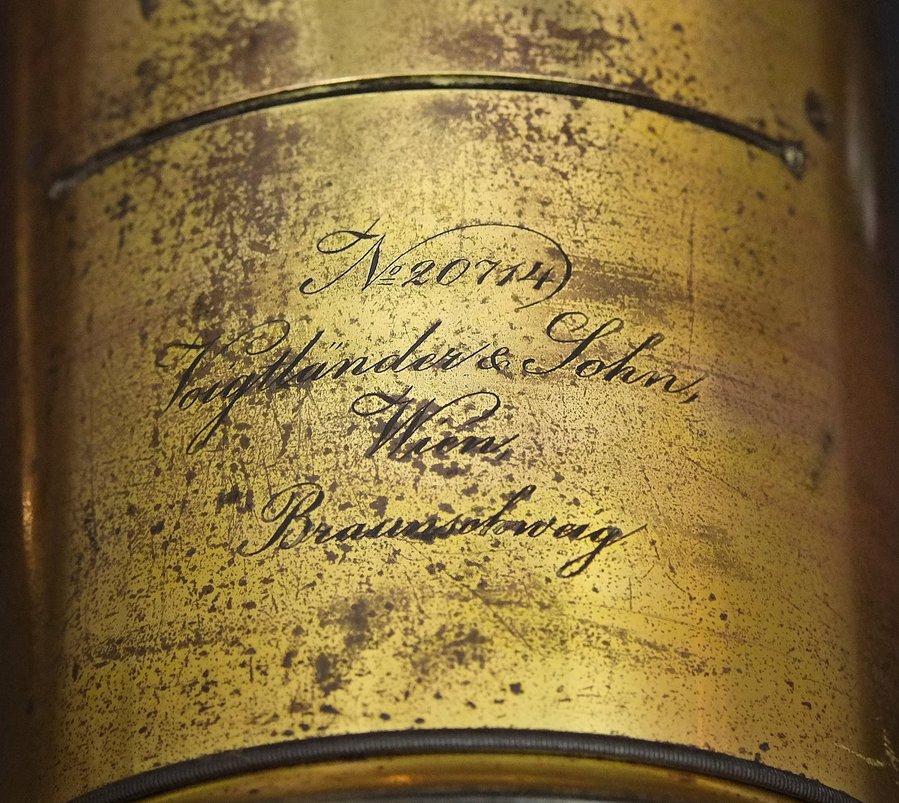 № 20714
Voigtländer & Sohn,
Wien,
Braunschweig